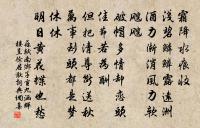 霜降水痕收
淺碧鱗鱗露遠洲
酒力漸消風力軟
颼颼
破帽多情卻戀頭
佳節若為酬
但把清尊斷送秋
萬事到頭都是夢
休休
明日黃花蝶也愁
蘇軾南鄉子重九涵輝
樓呈徐君猷詞典網集